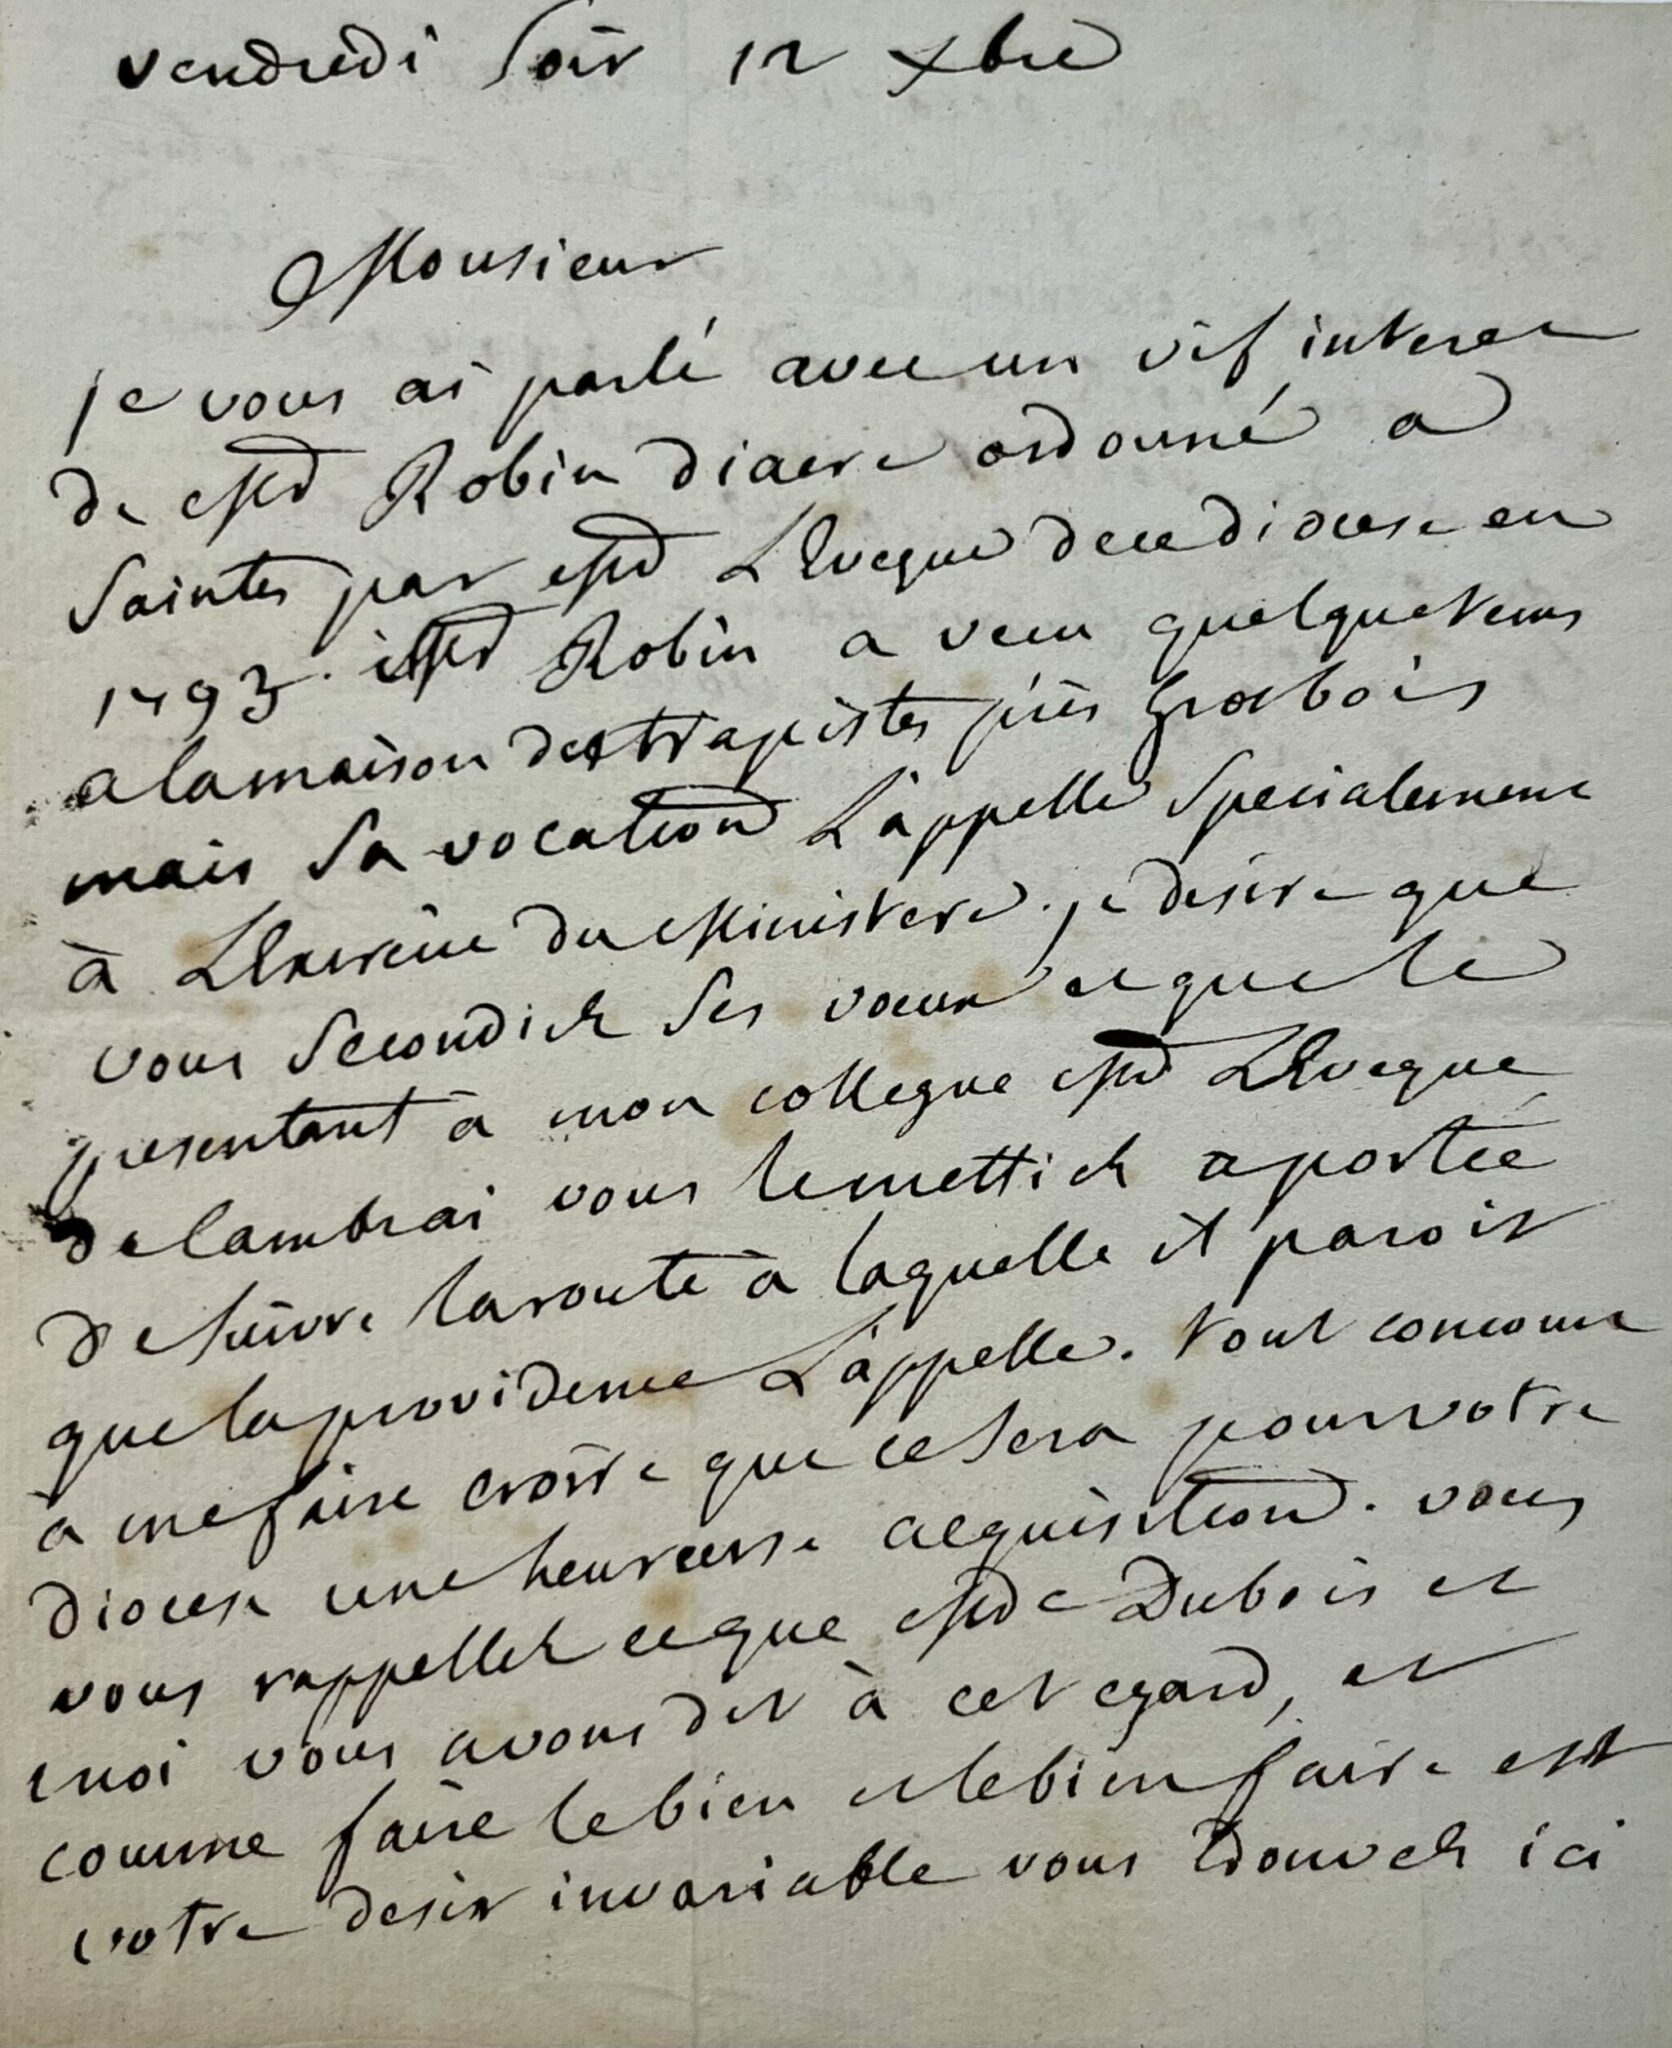 vendredi soir 12 xbre
Monsieur
je vous ai parlé avec un vif interet
de Mr Robin diacre ordonné a
Saintes par Mr L'Eveque de ce diocese en
1793. Mr Robin a vecu quelque tems
a la maison des trapistes près Grosbois
mais sa vocation L'appelle specialement
à L'Exercice du Ministere. je desire que
vous secondiez ses vœux et que le
presentant à mon collegue Mr L'Eveque
de Cambrai vous le mettiez a portée
de suivre la route à laquelle il paroit
que la providence L'appelle. tout concourt
à me faire croire que ce sera pour votre
diocese une heureuse acquisition. vous
vous rappellez ce que Mde Dubois et
moi vous avons dit à cet egard, et
comme faire le bien et le bien faire est
votre desir invariable vous trouvez ici